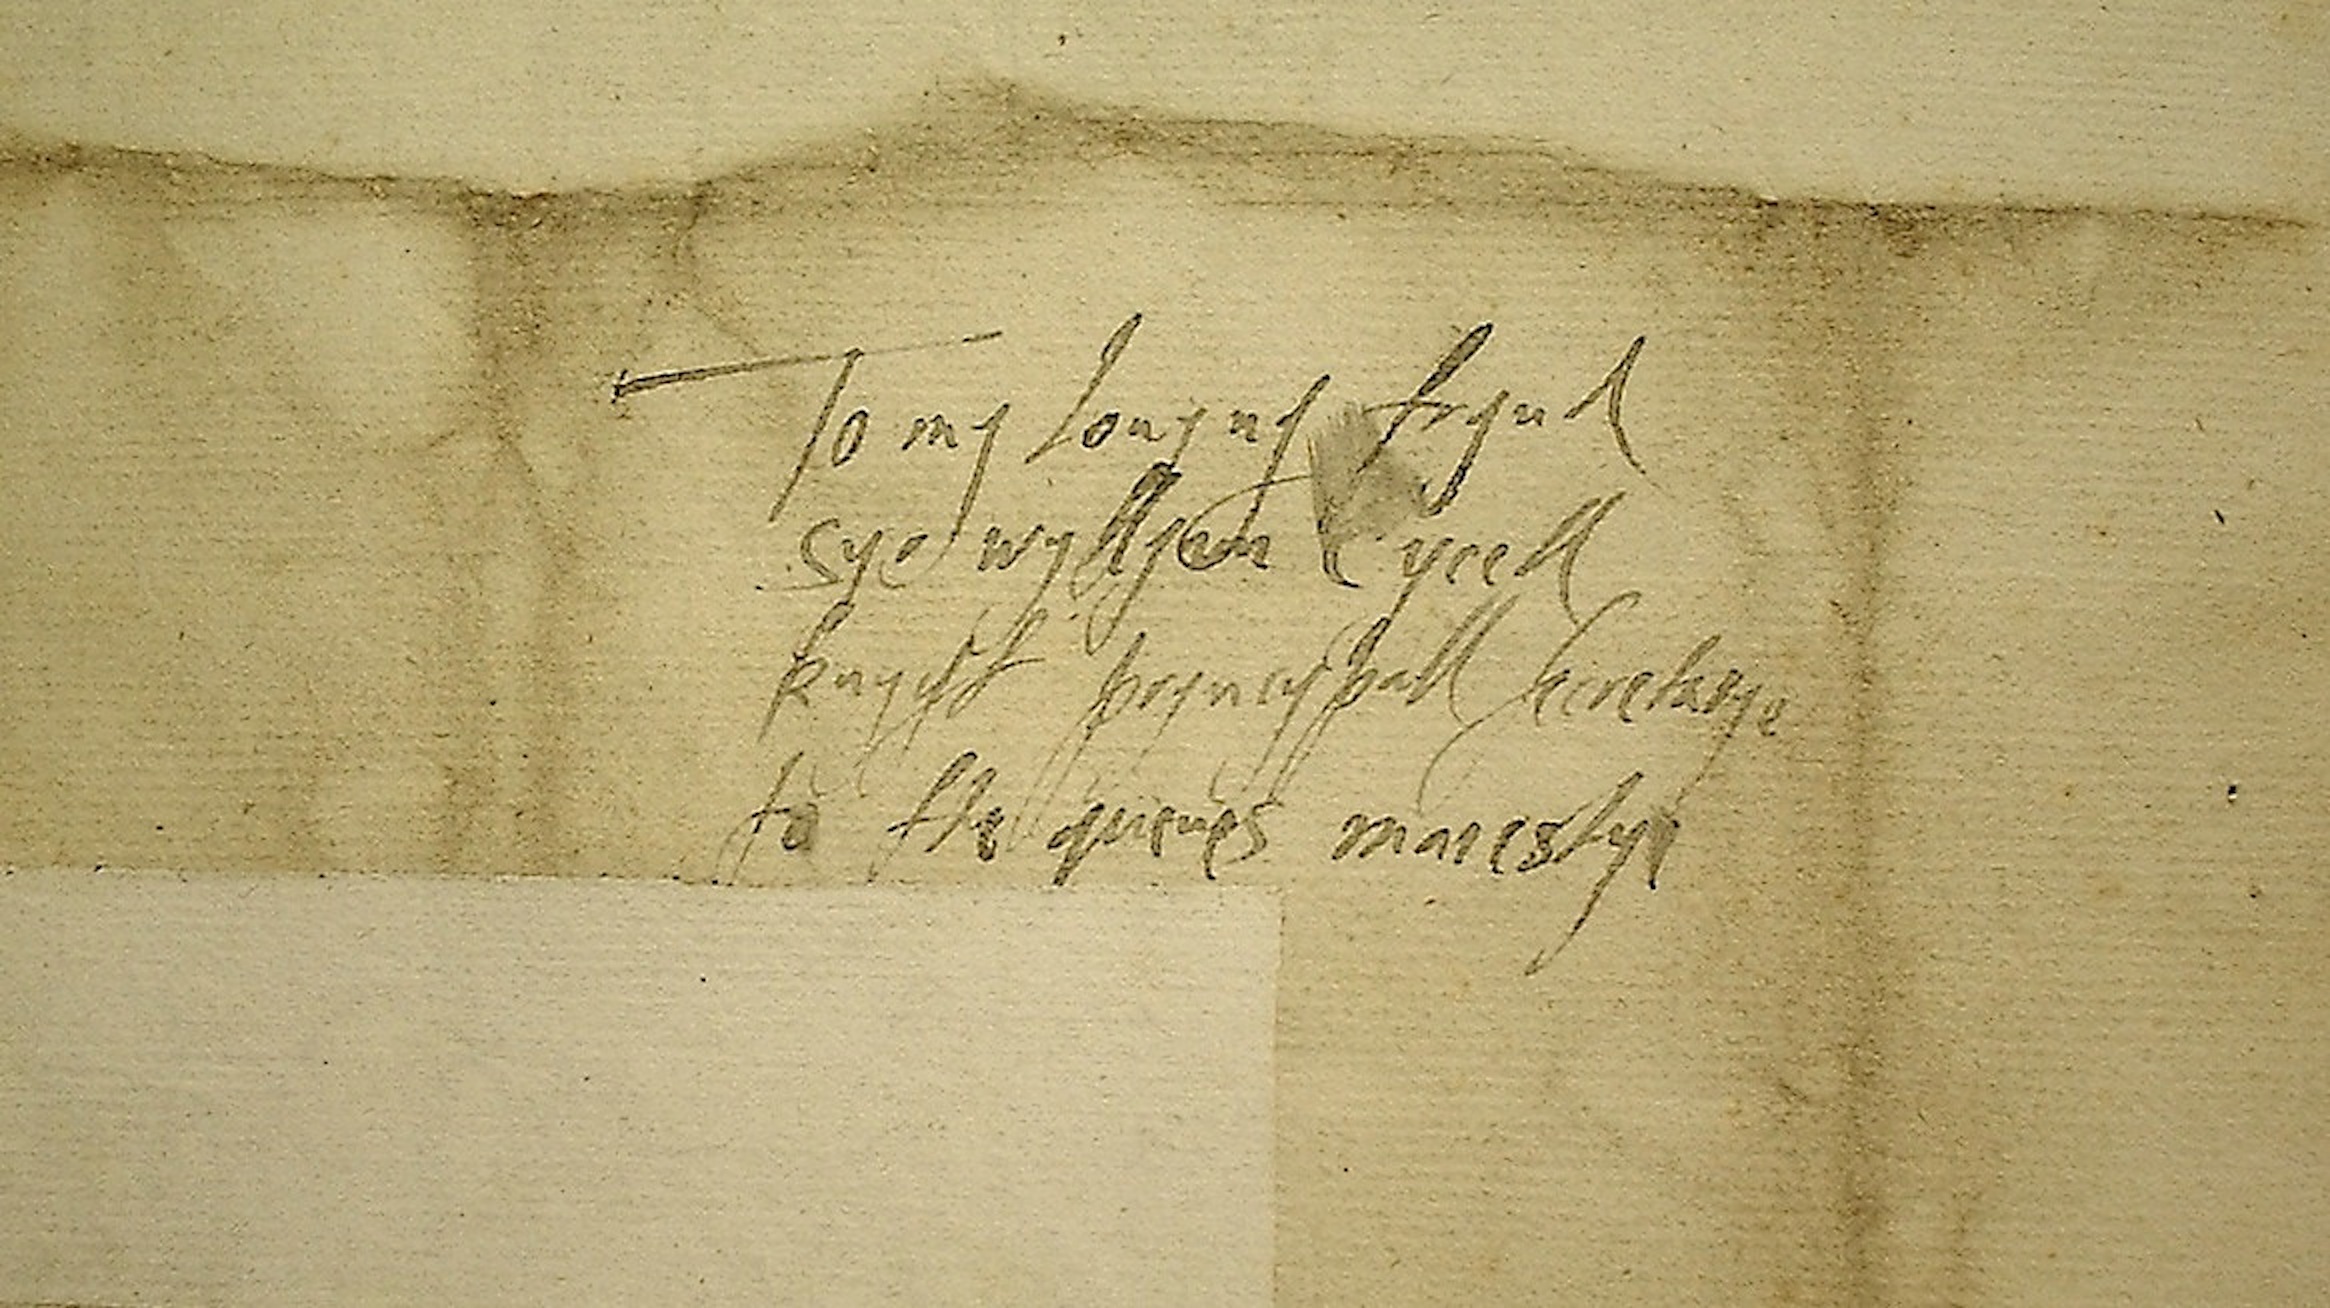 To my louyng frynd
Syr wyllyam Cycell
knyght pryncypall secretarye
to the quenes maiestye